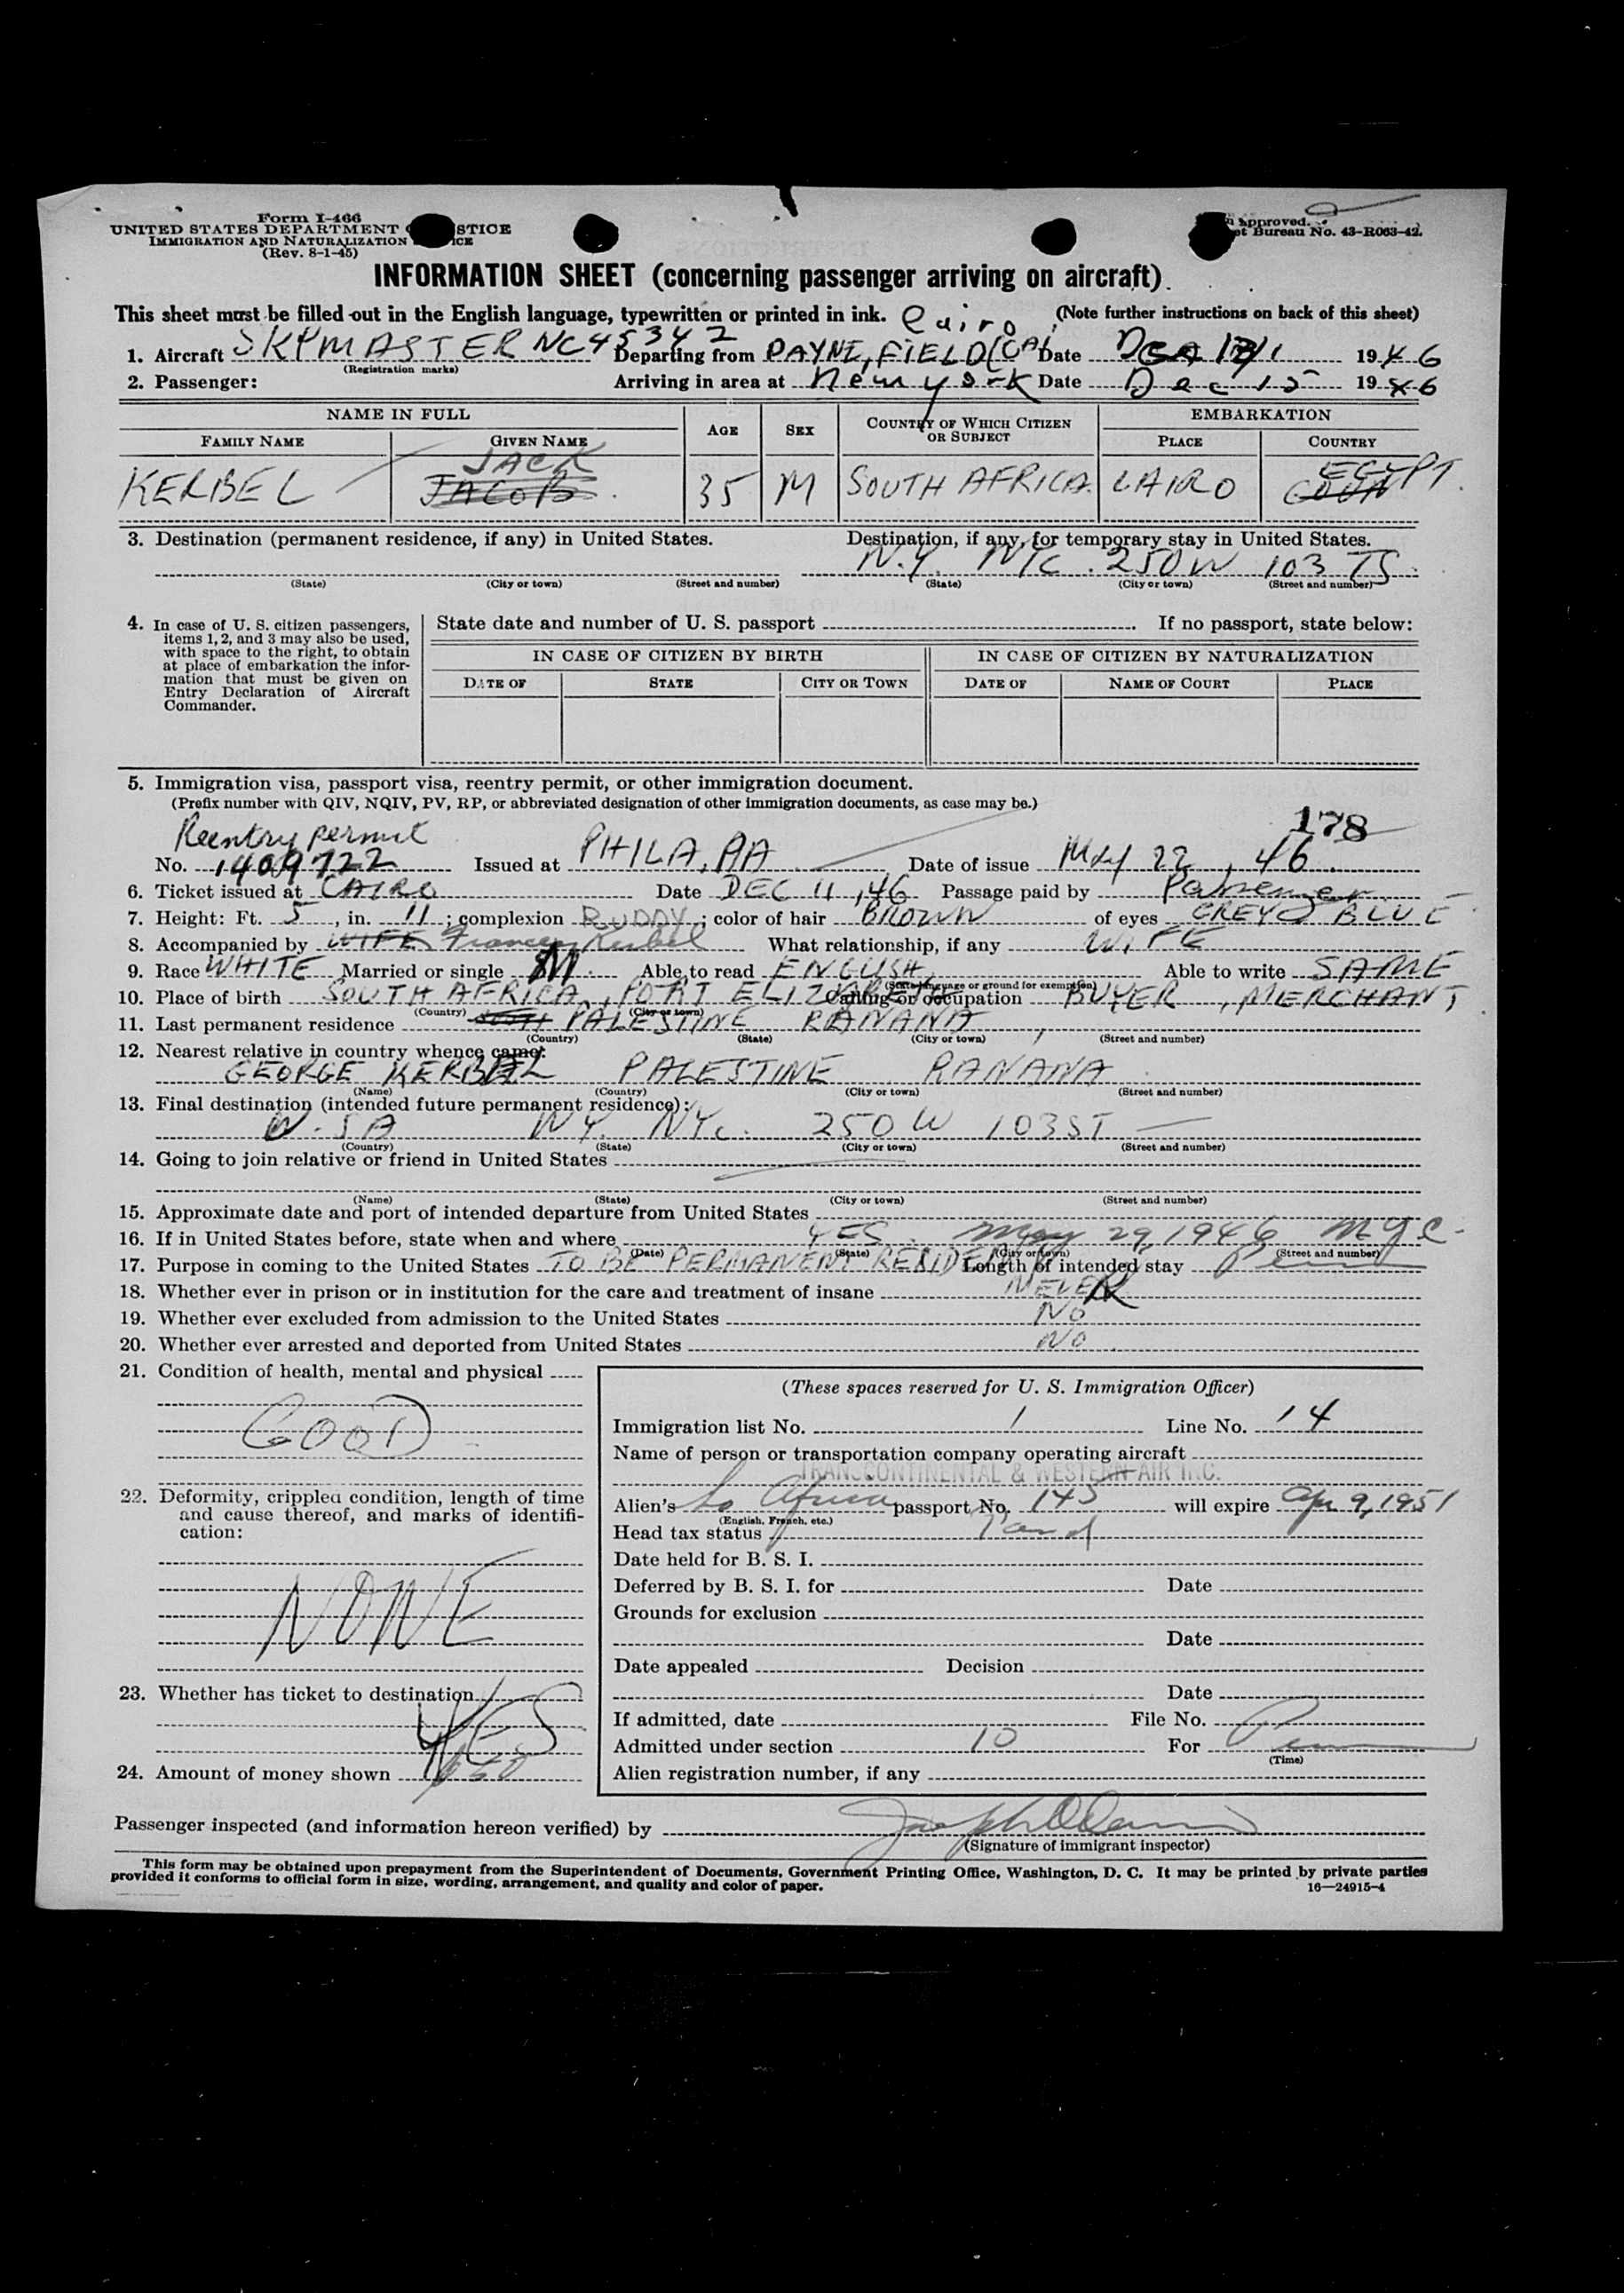 Form I-466
UNITED STATES DEPARTMENT STICE
IMMIGRATION AND NATURALIZATION ICE
(Rev. 8-1-45)
approved.
et Bureau No. 43-R063-42.
INFORMATION SHEET (concerning passenger arriving on aircraft)
This sheet must be filled out in the English language, typewritten or printed in ink. Cairo (Note further instructions on back of this sheet)
1. Aircraft SKYMASTER NC45342 Departing from PAYNE, FIELD Date 1946
(Registration marks)
2. Passenger: Arriving in area at New York Date Dec 15 1946
NAME IN FULL AGE SEX COUNTRY OF WHICH CITIZEN OR SUBJECT EMBARKATION
FAMILY NAME GIVEN NAME PLACE COUNTRY
JACK EGYPT.
KERBEL JACOB 35 M SOUTH AFRICA. CAIRO
3. Destination (permanent residence, if any) in United States. Destination, if any, for temporary stay in United States.
N.Y. NYC. 250 W 103 TS.
(State) (City or town) (Street and number) (State) (City or town) (Street and number)
4. In case of U. S. citizen passengers, items 1, 2, and 3 may also be used, with space to the right, to obtain at place of embarkation the information that must be given on Entry Declaration of Aircraft Commander.
State date and number of U. S. passport If no passport, state below:
IN CASE OF CITIZEN BY BIRTH IN CASE OF CITIZEN BY NATURALIZATION
DATE OF STATE CITY OR TOWN DATE OF NAME OF COURT PLACE
5. Immigration visa, passport visa, reentry permit, or other immigration document.
(Prefix number with QIV, NQIV, PV, RP, or abbreviated designation of other immigration documents, as case may be.)
178
Reentry permit
No. 1409722 Issued at PHILA, Date of issue May 22, 46.
6. Ticket issued at CAIRO Date DEC 11, 46 Passage paid by
7. Height: Ft. 5, in. 11; complexion RUDDY; color of hair BROWN of eyes GREY BLUE
8. Accompanied by WIFE Frances Kerbel What relationship, if any WIFE
9. Race WHITE Married or single M. Able to read ENGLISH, Able to write SAME
(State language or ground for exemption)
10. Place of birth SOUTH AFRICA, PORT ELIZABETH Calling or occupation BUYER, MERCHANT
(Country) (City or town)
11. Last permanent residence PALESTINE RANANA
(Country) (State) (City or town) (Street and number)
12. Nearest relative in country whence came:
GEORGE KERBEL PALESTINE RANANA
(Name) (Country) (City or town) (Street and number)
13. Final destination (intended future permanent residence):
U.SA NY. NYC. 250 W 103 ST
(Country) (State) (City or town) (Street and number)
14. Going to join relative or friend in United States
(Name) (State) (City or town) (Street and number)
15. Approximate date and port of intended departure from United States
16. If in United States before, state when and where YES. May 29, 1946 NYC
(Date) (State) (City or town) (Street and number)
17. Purpose in coming to the United States TO BE PERMANENT RESIDENT Length of intended stay Perm
18. Whether ever in prison or in institution for the care and treatment of insane NEVER
19. Whether ever excluded from admission to the United States NO
20. Whether ever arrested and deported from United States NO
21. Condition of health, mental and physical
GOOD
22. Deformity, crippled condition, length of time and cause thereof, and marks of identification:
NONE
23. Whether has ticket to destination
YES
24. Amount of money shown
(These spaces reserved for U. S. Immigration Officer)
Immigration list No. 1 Line No. 14
Name of person or transportation company operating aircraft
TRANSCONTINENTAL & WESTERN AIR INC.
Alien's So Africa passport No. 143 will expire Apr 9, 1951
(English, French, etc.)
Head tax status Paid
Date held for B. S. I.
Deferred by B. S. I. for Date
Grounds for exclusion
Date
Date appealed Decision
Date
If admitted, date File No.
Admitted under section 10 For Perm
(Time)
Alien registration number, if any
Passenger inspected (and information hereon verified) by
(Signature of immigrant inspector)
This form may be obtained upon prepayment from the Superintendent of Documents, Government Printing Office, Washington, D. C. It may be printed by private parties
provided it conforms to official form in size, wording, arrangement, and quality and color of paper.
16—24915-4